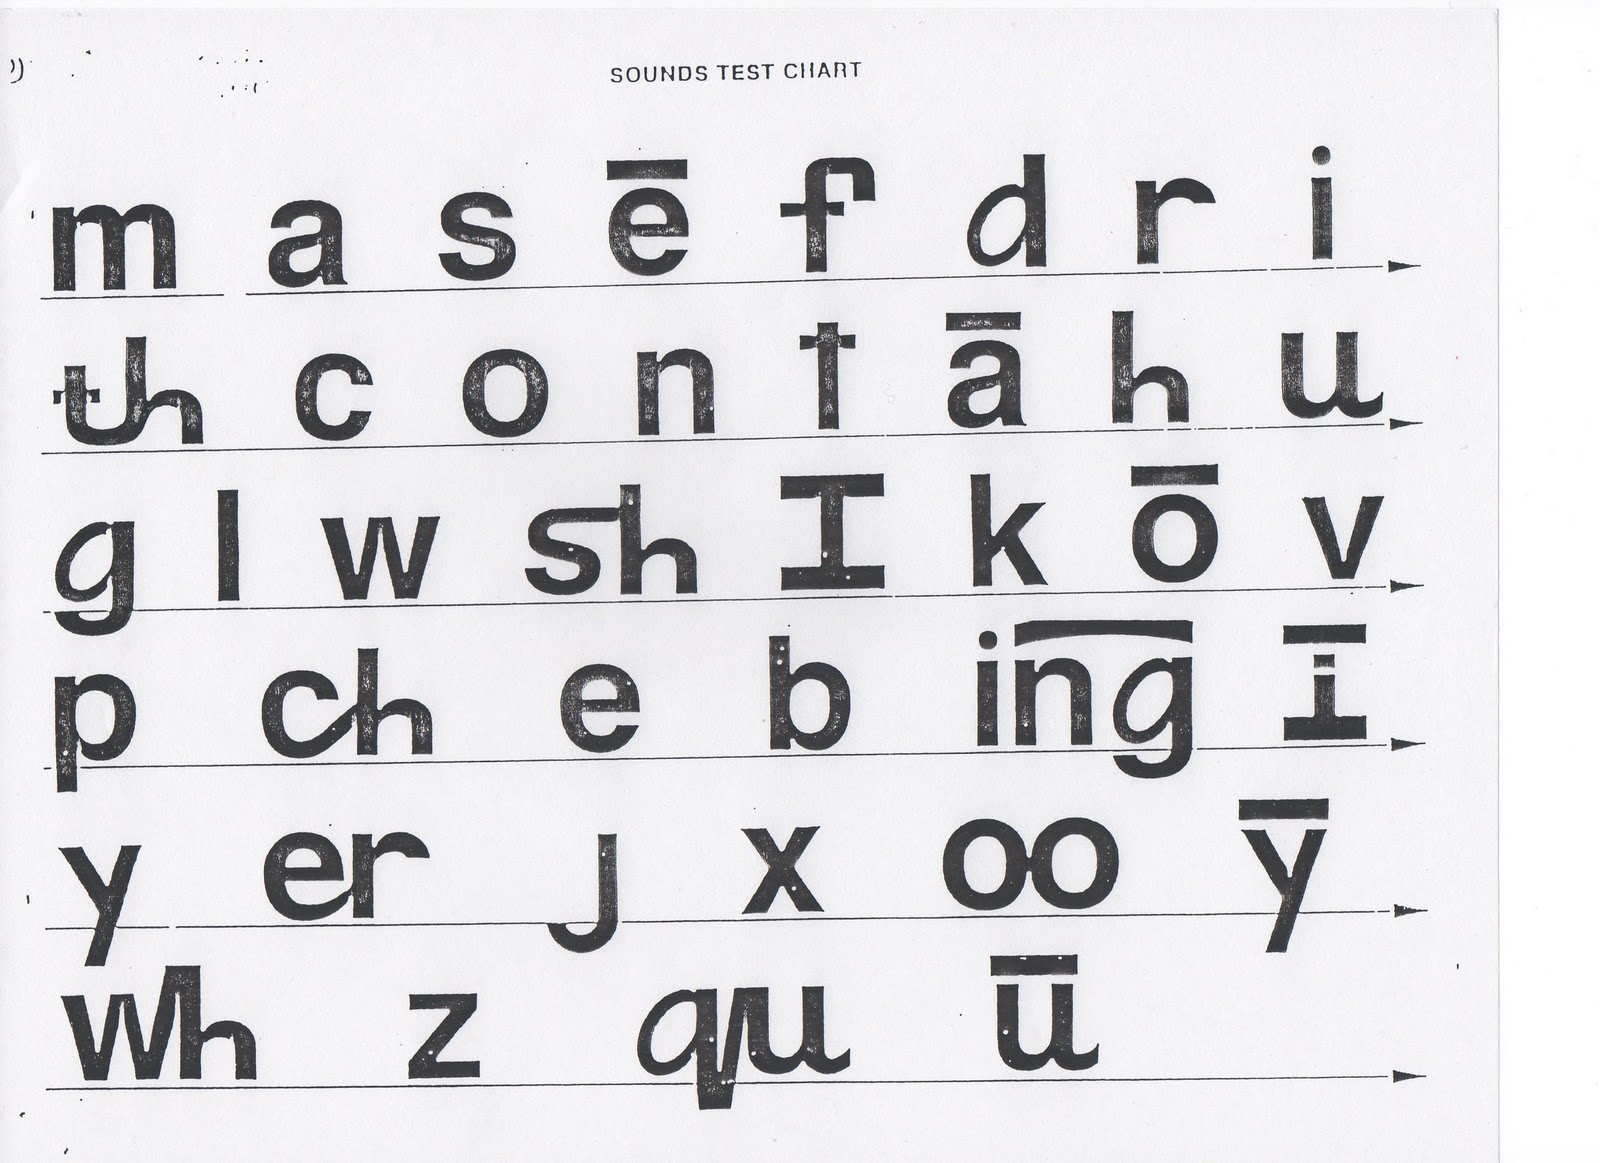 SOUNDS TEST CHART
m a s ē f d r i
th c o n t ā h u
g l w sh I k ō v
p ch e b ing ī
y er j x oo ȳ
wh z qu ū